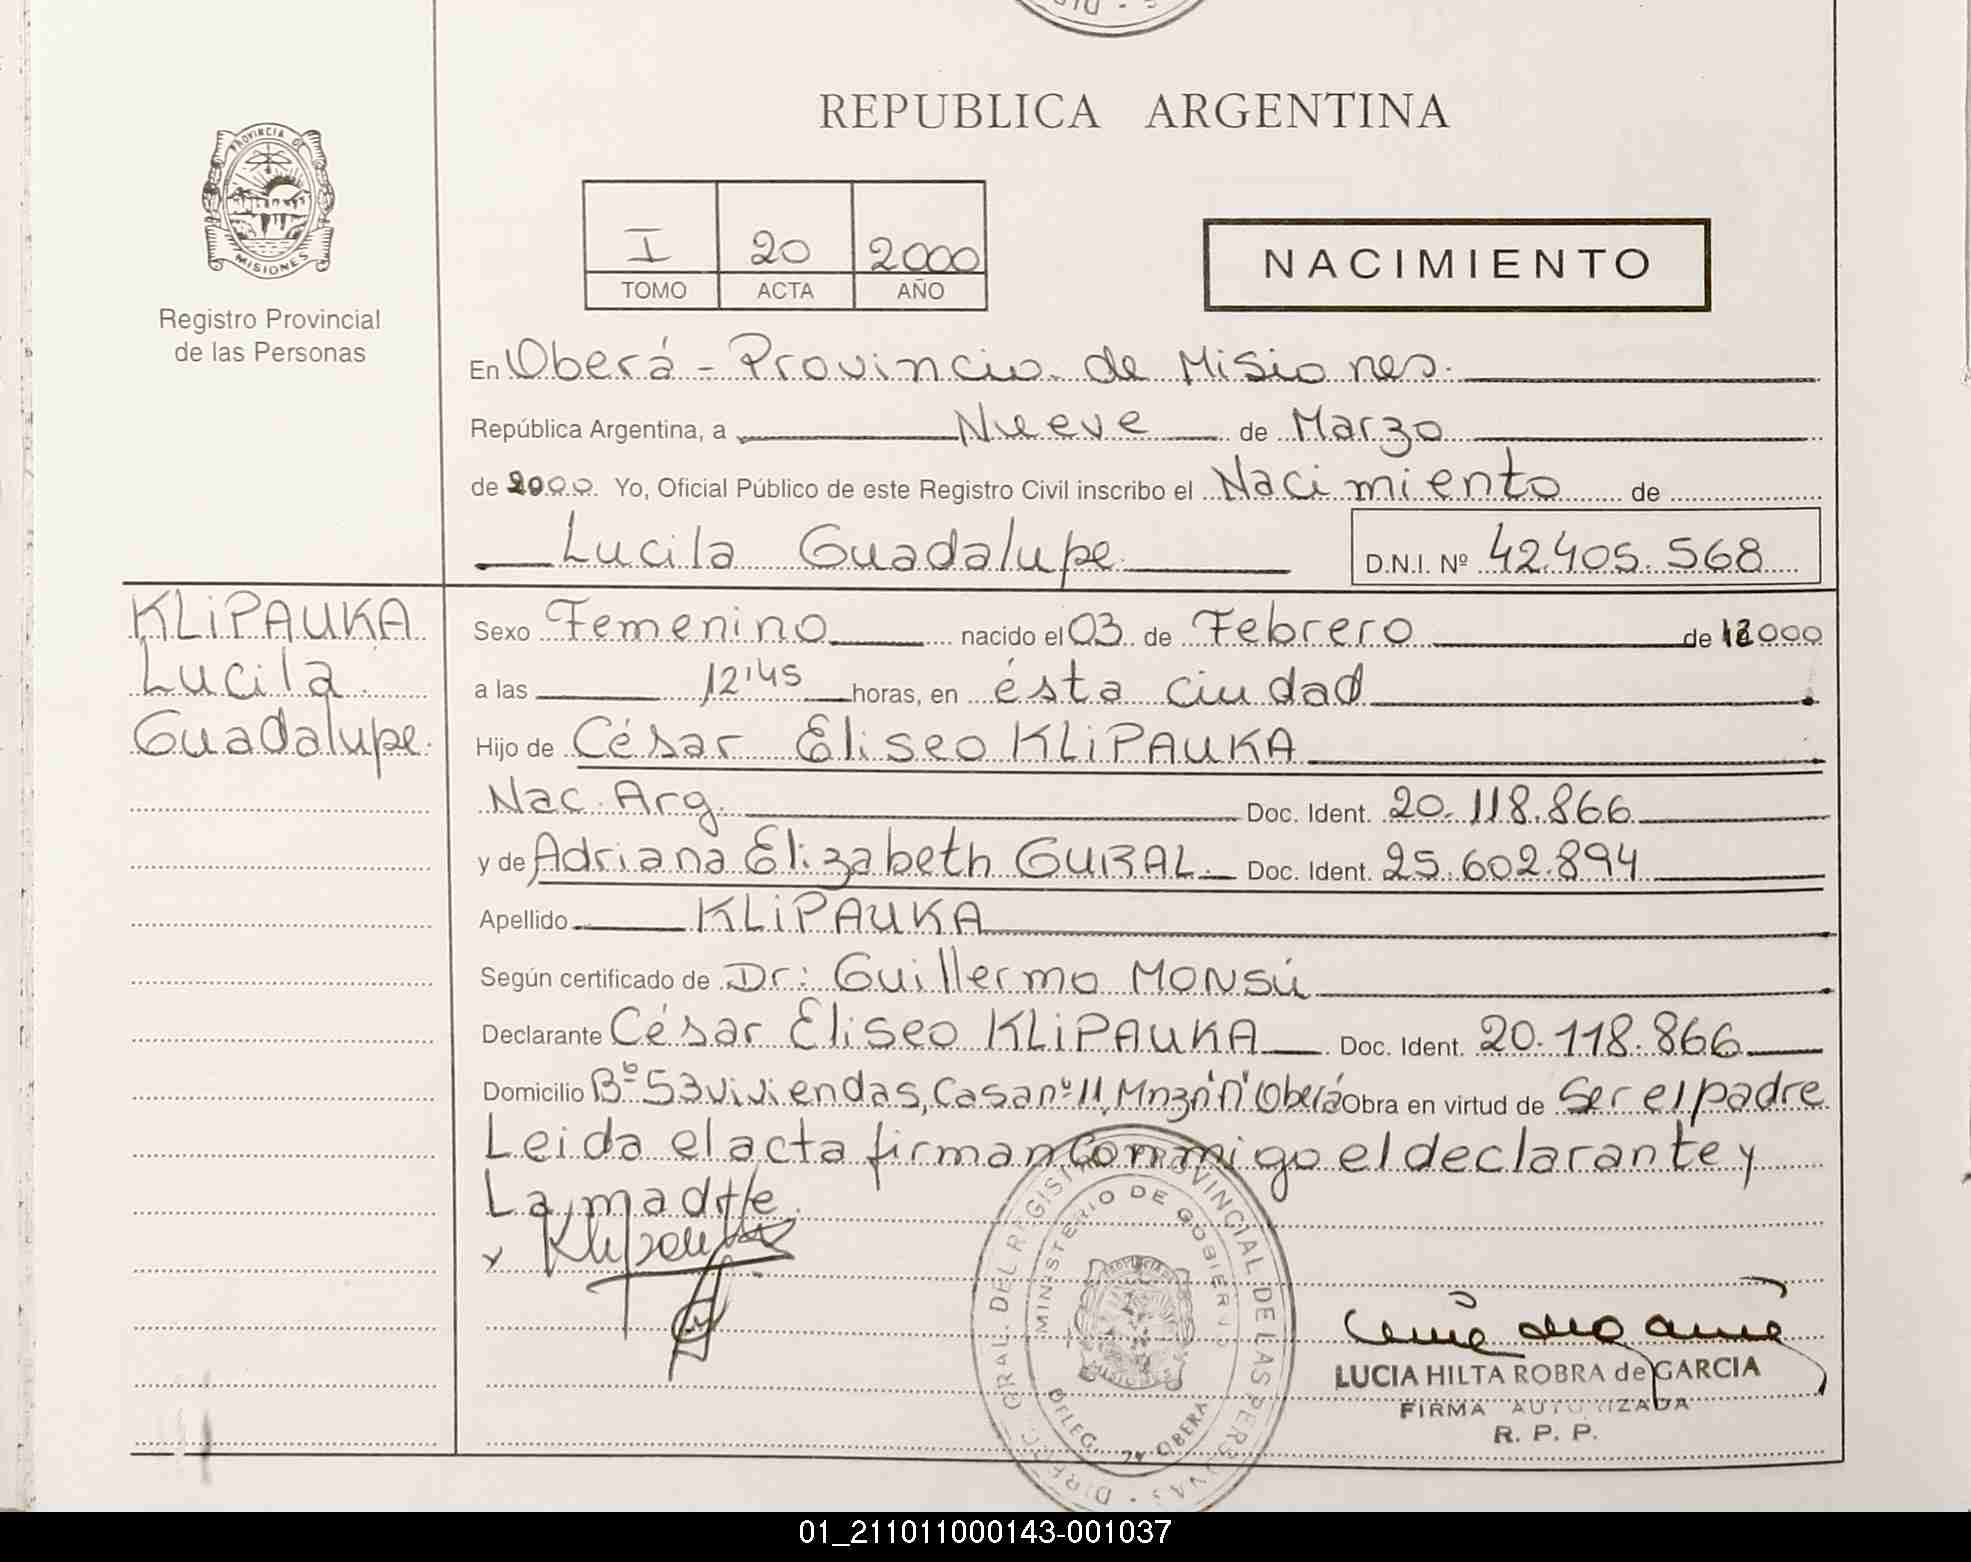 REPUBLICA ARGENTINA
PROVINCIA DE
MISIONES
Registro Provincial
de las Personas
I 20 2000
TOMO ACTA AÑO
NACIMIENTO
En Oberá - Provincia de Misiones.
República Argentina, a Nueve de Marzo
de 2000. Yo, Oficial Público de este Registro Civil inscribo el Nacimiento de
Lucila Guadalupe D.N.I. Nº 42.405.568
KLIPAUKA
Lucila
Guadalupe.
Sexo Femenino nacido el 03 de Febrero de 2000
a las 12'45 horas, en ésta ciudad
Hijo de César Eliseo KLIPAUKA
Nac. Arg. Doc. Ident. 20.118.866
y de Adriana Elizabeth GURAL. Doc. Ident. 25.602.894
Apellido KLIPAUKA
Según certificado de Dr: Guillermo MONSÚ
Declarante César Eliseo KLIPAUKA Doc. Ident. 20.118.866
Domicilio Bº 53 viviendas, Casa nº 11, Mnz "n" Oberá Obra en virtud de Ser el padre
Leida el acta firman conmigo el declarante y
La madre.
DIRECC. GRAL. DEL REGISTRO PROVINCIAL DE LAS PERSONAS
MINISTERIO DE GOBIERNO
DELEG. OBERA
LUCIA HILTA ROBRA de GARCIA
FIRMA AUTORIZADA
R. P. P.
01_211011000143-001037